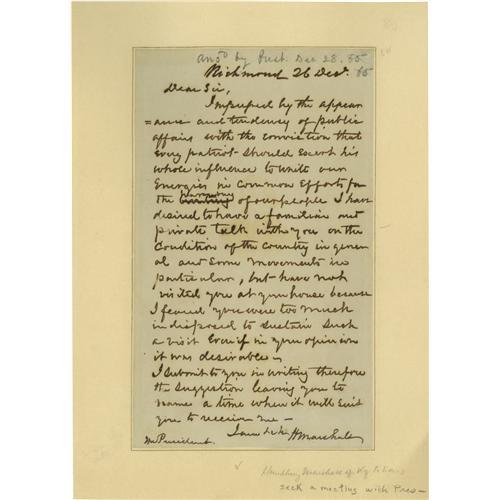 ansd by Pres. Dec 28. 65
Richmond 26 Decr. 65
Dear Sir,
Impressed by the appear
=ance and tendency of public
affairs with the conviction that
every patriot should exert his
whole influence to unite our
Energies in common efforts for
the harmony of our people I have
desired to have a familiar and
private talk with you on the
Condition of the country in gener
al and some movements in
particular, but have not
visited you at your house because
I feared you were too much
indisposed to sustain such
a visit Even if in your opinion
it was desirable –
I submit to you in writing therefore
the suggestion leaving you to
name a time when it will suit
you to receive me –
I am &c H Marshall
Mr President.
Humphrey Marshall of Ky
seek a meeting with Pres –